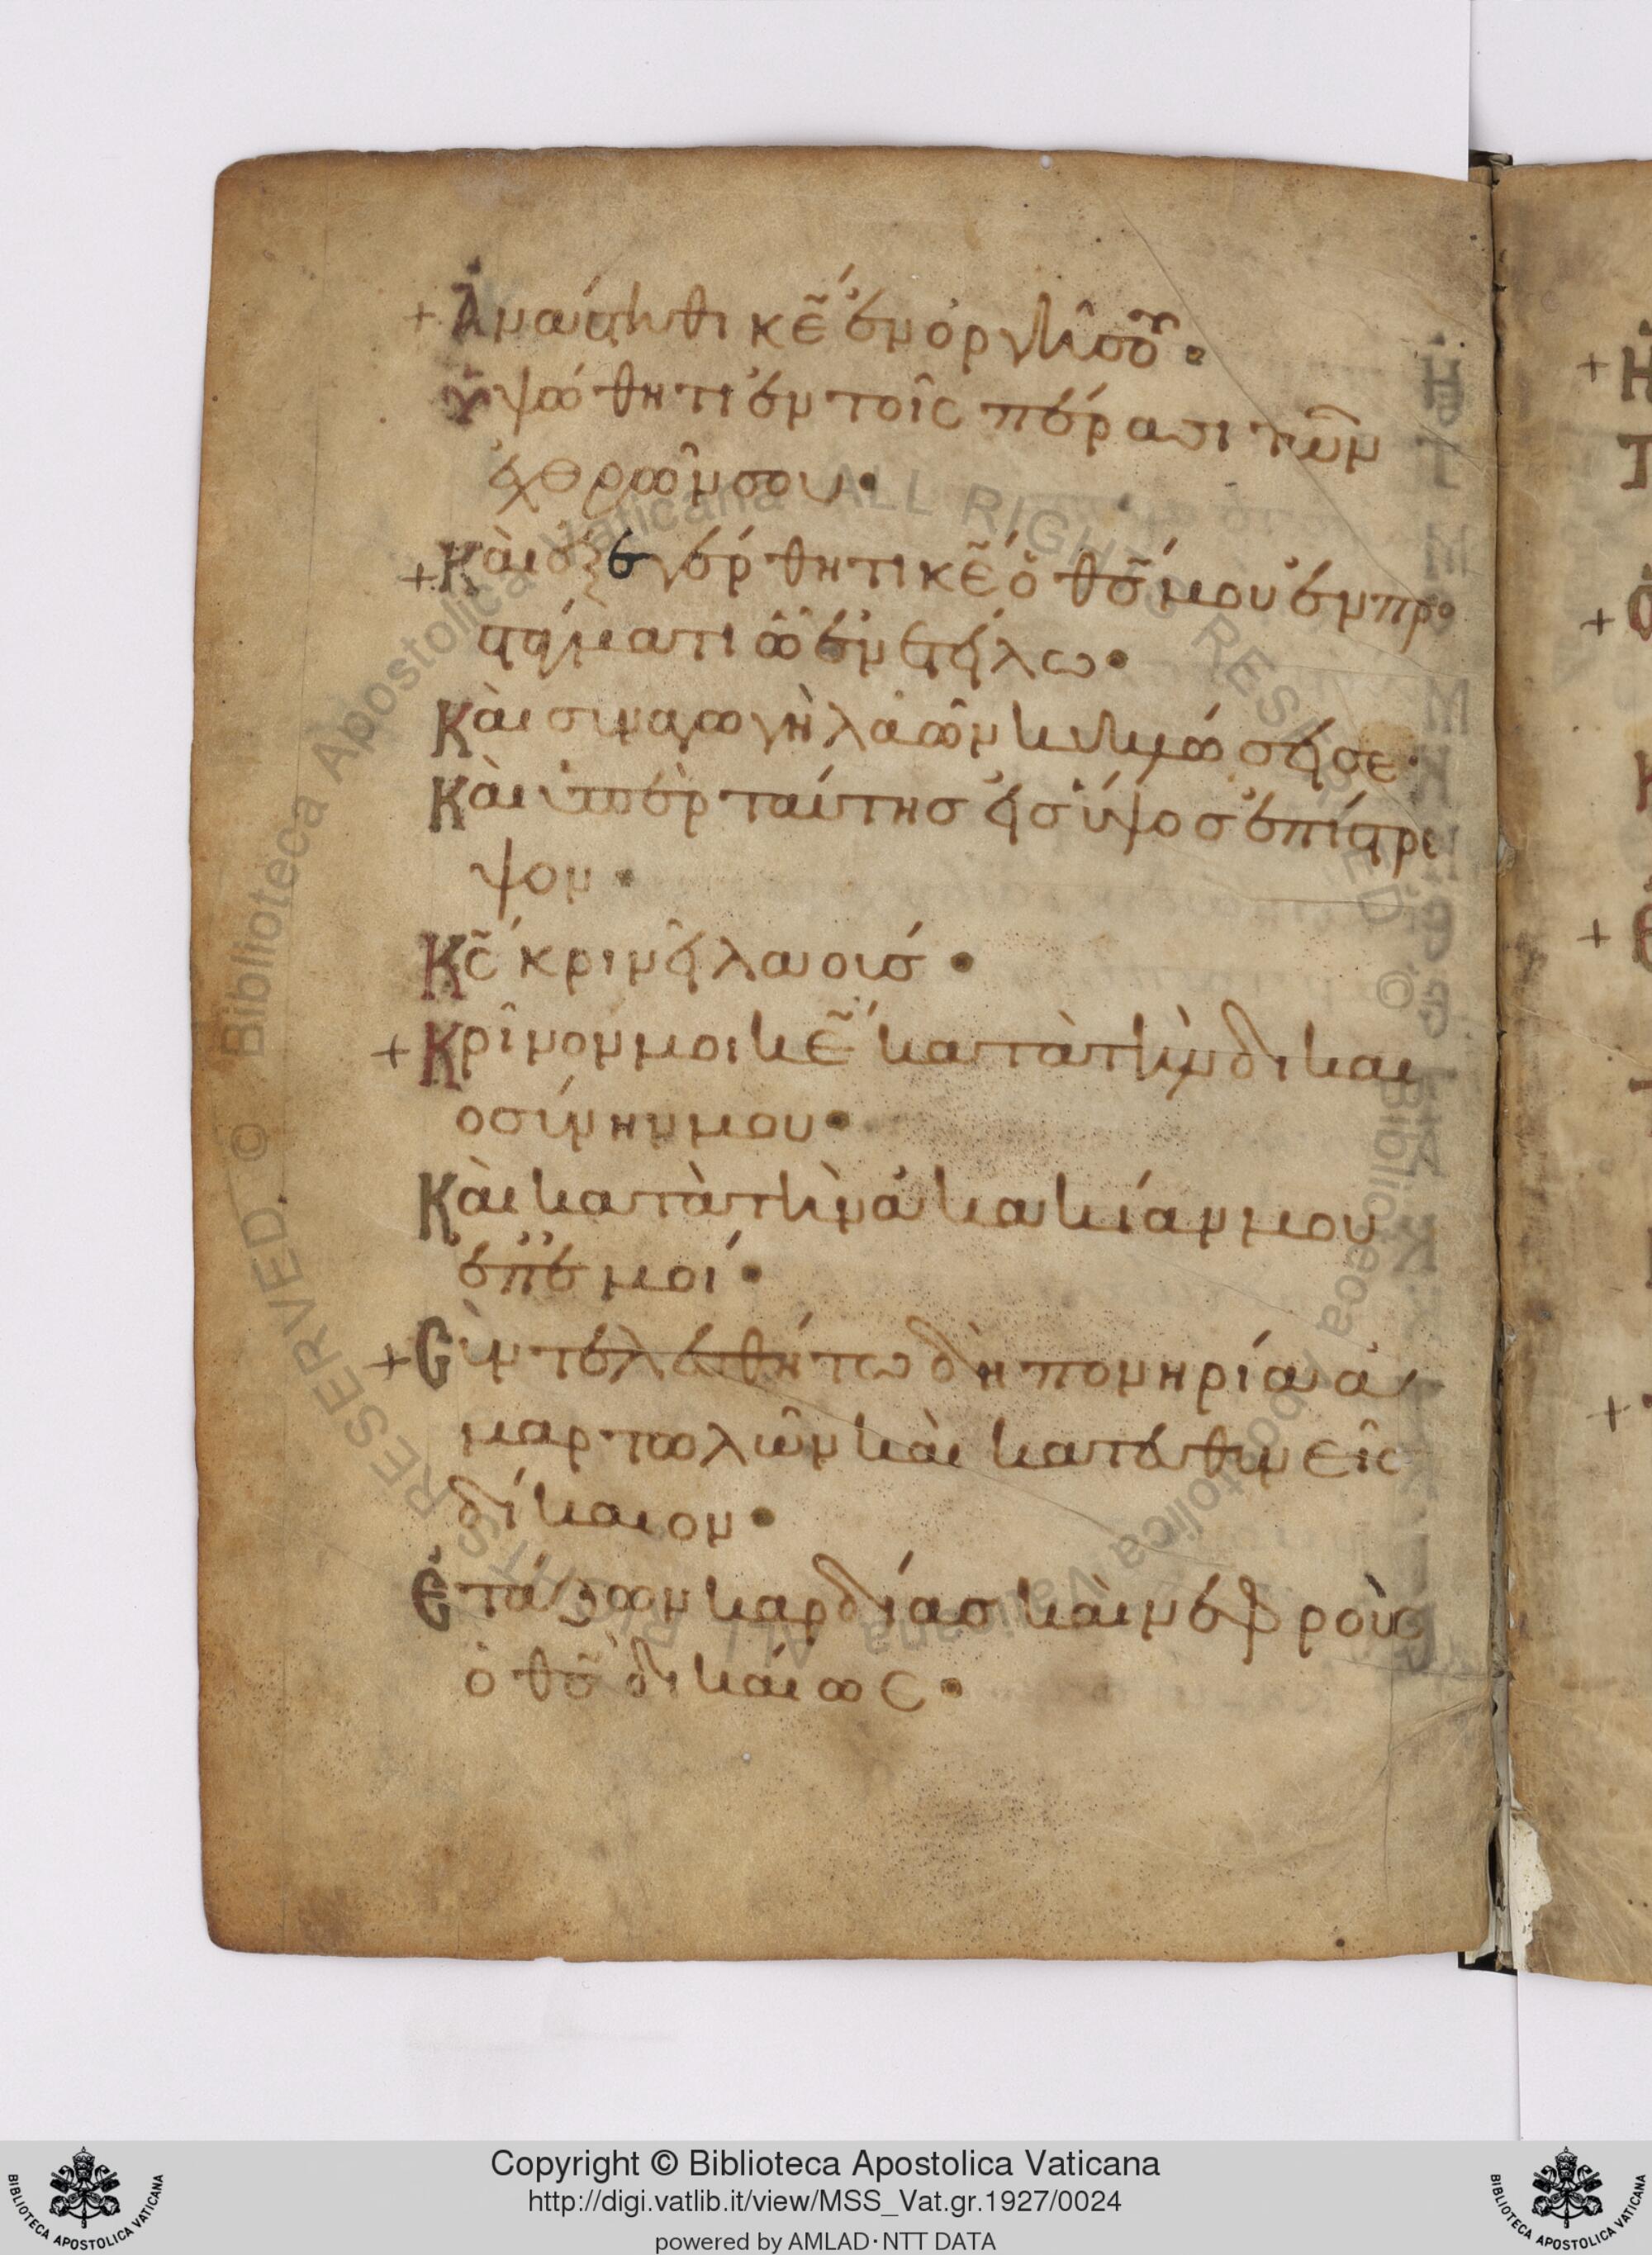 + Ἀνάστηθι κε̃ ἐν ὀργῆ σου·
Ὑψώθητι ἐν τοῖς πέρασι τῶν
ἐχθρῶν σου·
+ Καὶ ἐξεγέρθητι κε̃ ὁ θσ̃ μου ἐν προ
στάματι ὧ ἐν
Καὶ συναγωγὴ λαῶν κυκλώσει σε·
Καὶ ὑπὲρ ταύτησ εἰσ ὕψοσ ἐπίστρε
ψον·
Κς̃ κρινεῖ λαούσ·
+ Κρῖνον μοι κε̃ κατὰ τὴν δικαι
οσύνην μου·
Καὶ κατὰ τὴν ἀκακίαν μου
ἐπ' ἐμοί·
+ Συντελεσθήτω δὴ πονηρία ἁ
μαρτωλῶν καὶ κατευθυνεῖς
δίκαιον·
Ἐτάζων καρδίασ καὶ νεφροὺς
ὁ θσ̃ δικαίως·
Copyright © Biblioteca Apostolica Vaticana
http://digi.vatlib.it/view/MSS_Vat.gr.1927/0024
powered by AMLAD·NTT DATA
BIBLIOTECA APOSTOLICA VATICANA
BIBLIOTECA APOSTOLICA VATICANA
Biblioteca Apostolica Vaticana ALL RIGHTS RESERVED. © Biblioteca Apostolica Vaticana ALL RIGHTS RESERVED. ©